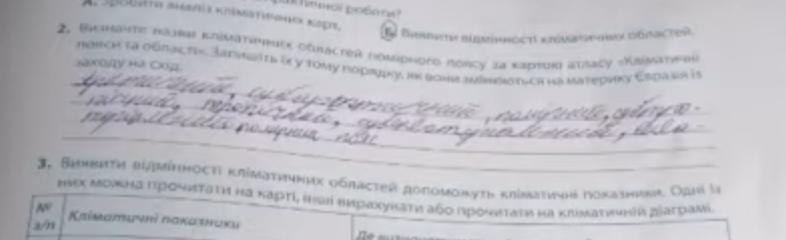 А. Зробити аналіз кліматичних карт.
практичної роботи?
Б Виявити відмінності кліматичних областей.
2. Визначте назви кліматичних областей помірного поясу за картою атласу «Кліматичні
пояси та області». Запишіть їх у тому порядку, як вони змінюються на материку Євразія із
заходу на схід.
арктичний, субарктичний, помірний, субтро-
пічний, тропічний, субекваторіальний,
помірний пояс
3. Виявити відмінності кліматичних областей допоможуть кліматичні показники. Одні із
них можна прочитати на карті, інші вирахувати або прочитати на кліматичній діаграмі.
№
з/п
Кліматичні показники
Де